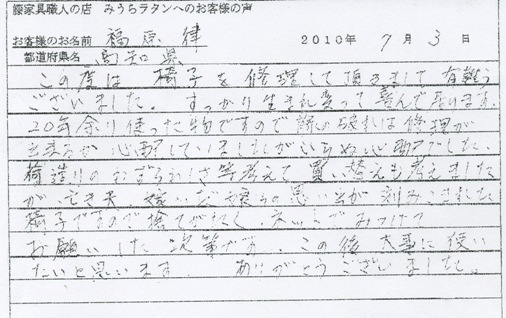 籐家具職人の店 みうらラタンへのお客様の声
お客様のお名前 福原 律 2010年 7月 3日
都道府県名 高知県
この度は 椅子を修理して頂きまして 有難う
ございました。 すっかり生まれ変って喜んで居ります。
20年余り使った物ですので 籐の破れは修理が
出来るか 心配していましたがいらぬ心配でした。
荷造りのわずらわしさ等考えて 買い替えも考えました
が、亡き夫、嫁いだ娘らの思い出が 刻みこまれた
椅子ですので捨てがたく ネットでみつけて
お願いした 次第です。 この後 大事に使い
たいと思います ありがとうございました。